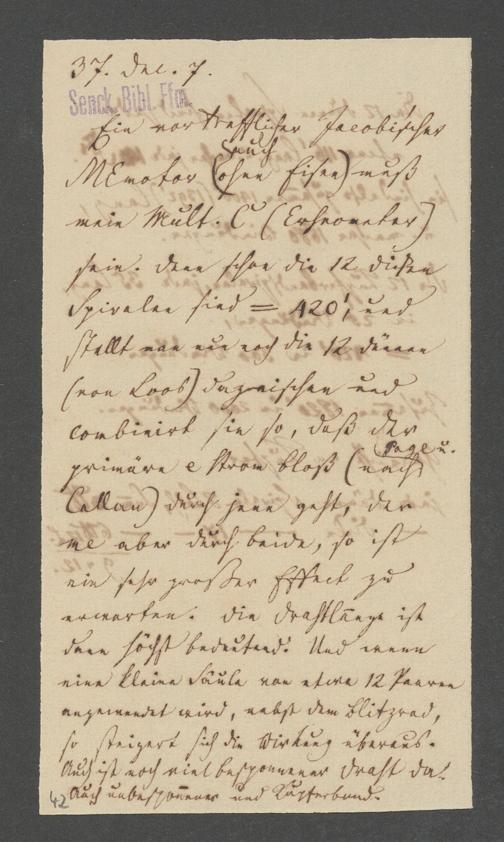 37. Dec. 7.
Senck. Bibl. Ffm.
Ein vortrefflicher Jacobi'scher
auch
MEmotor (ohne Eisen) muß
mein Mult. C (Echeometer)
sein. Denn schon die 12 dicken
Spiralen sind = 420', und
stellt man nun noch die 12 dünnen
(von Loos) dazwischen und
combinirt sie so, daß der
Page u.
primäre e Strom bloß (nach
Callan) durch jene geht, der
me aber durch beide, so ist
ein sehr großer Effect zu
erwarten. Die Drahtlänge ist
dann höchst bedeutend! Und wenn
eine kleine Säule von etwa 12 Paaren
angewendet wird, nebst dem Blitzrad,
so steigert sich die Wirkung überaus.
Auch ist noch viel besponnener Draht da!
Auch unbesponnener und Kupferband.
42